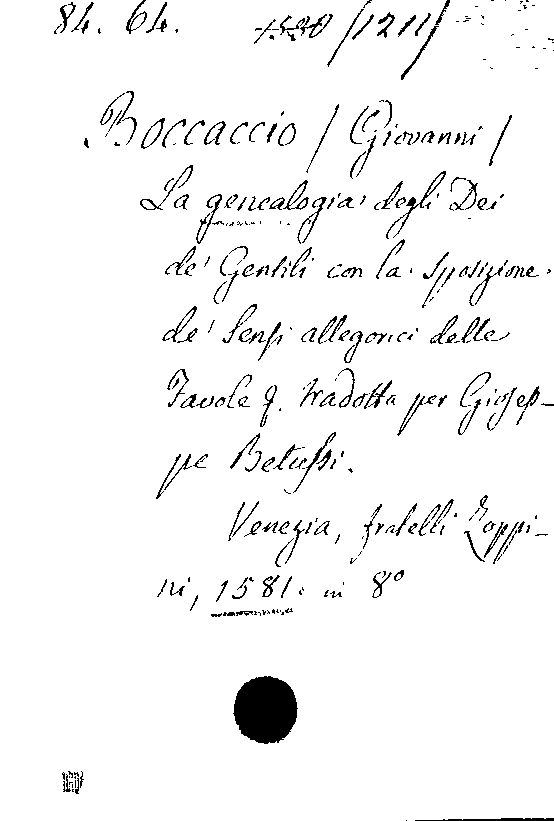 84. 64. 1580 /1211/
Boccaccio / Giovanni /
La genealogia degli Dei
de' Gentili con la sposizione
de' Sensi allegorici delle
Favole &. tradotta per Giosep-
pe Betussi.
Venezia, fratelli Zoppi-
ni, 1581. in 8º